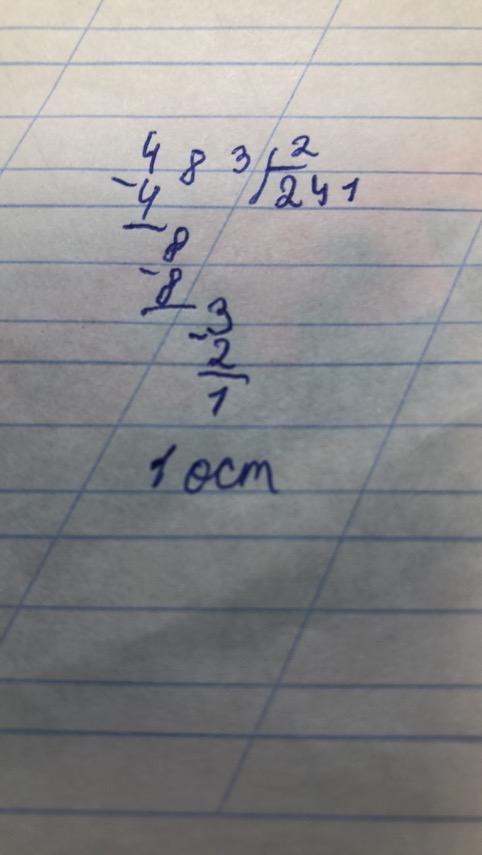 4 8 3 2
- 4 241
8
- 8
3
- 2
1
1 ост